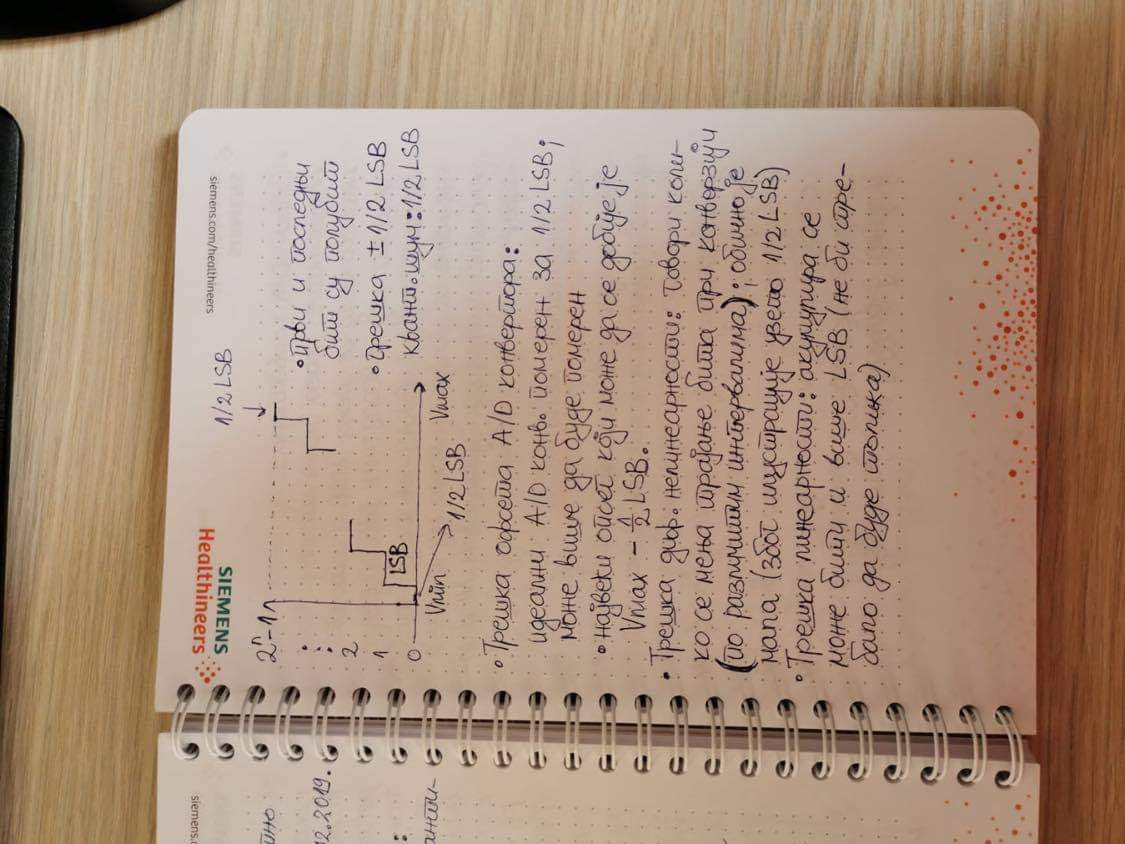 SIEMENS
Healthineers
siemens.com/healthineers
1/2 LSB
2ⁿ-1
2
1
0
LSB
Vмin
1/2 LSB
Vмax
• Први и последњи
бит су полубит
• Грешка ± 1/2 LSB
Квант. шум: 1/2 LSB
• Грешка офсета A/D конвертора:
идеални A/D конв. померен за 1/2 LSB;
може више да буде померен
• највећи опсег који може да се добије је
Vмax - 1/2 LSB.
• Грешка диф. нелинеарности: говори коли-
ко се мења трајање бита при конверзији
(по различитим интервалима); обично је
мала (због илустрације узето 1/2 LSB)
• Грешка линеарности: акумулира се
може бити и више LSB (не би тре-
бало да буде толика)
siemens.
12.2019.